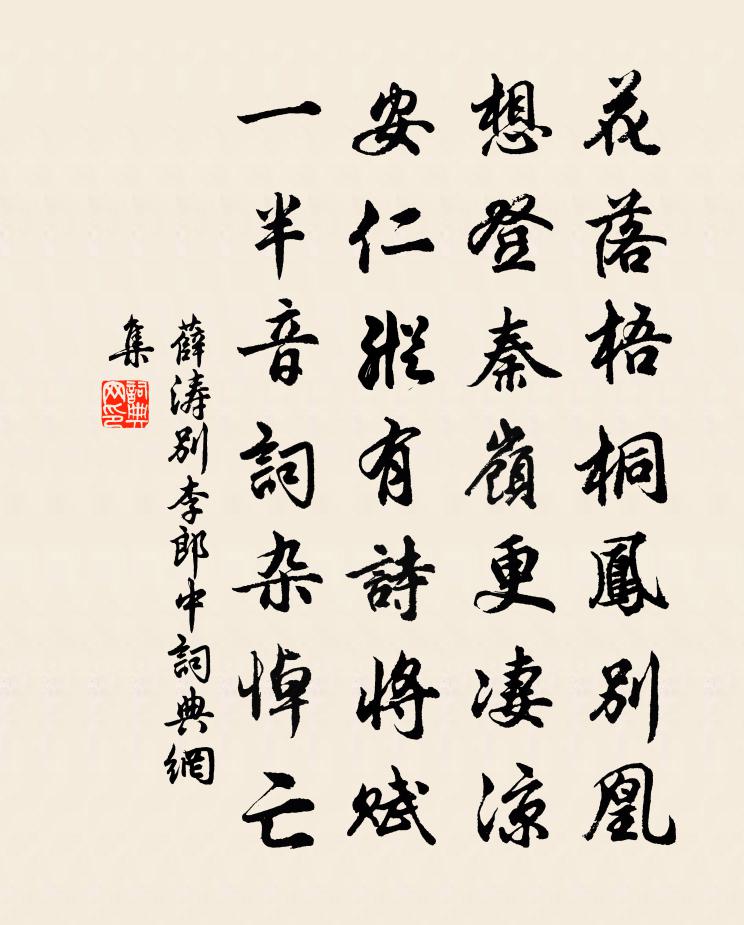 花落梧桐鳳別凰
想登秦嶺更淒涼
安仁縱有詩將賦
一半音詞杂悼亡
薛濤別李郎中詞典網
集
詞典
网印